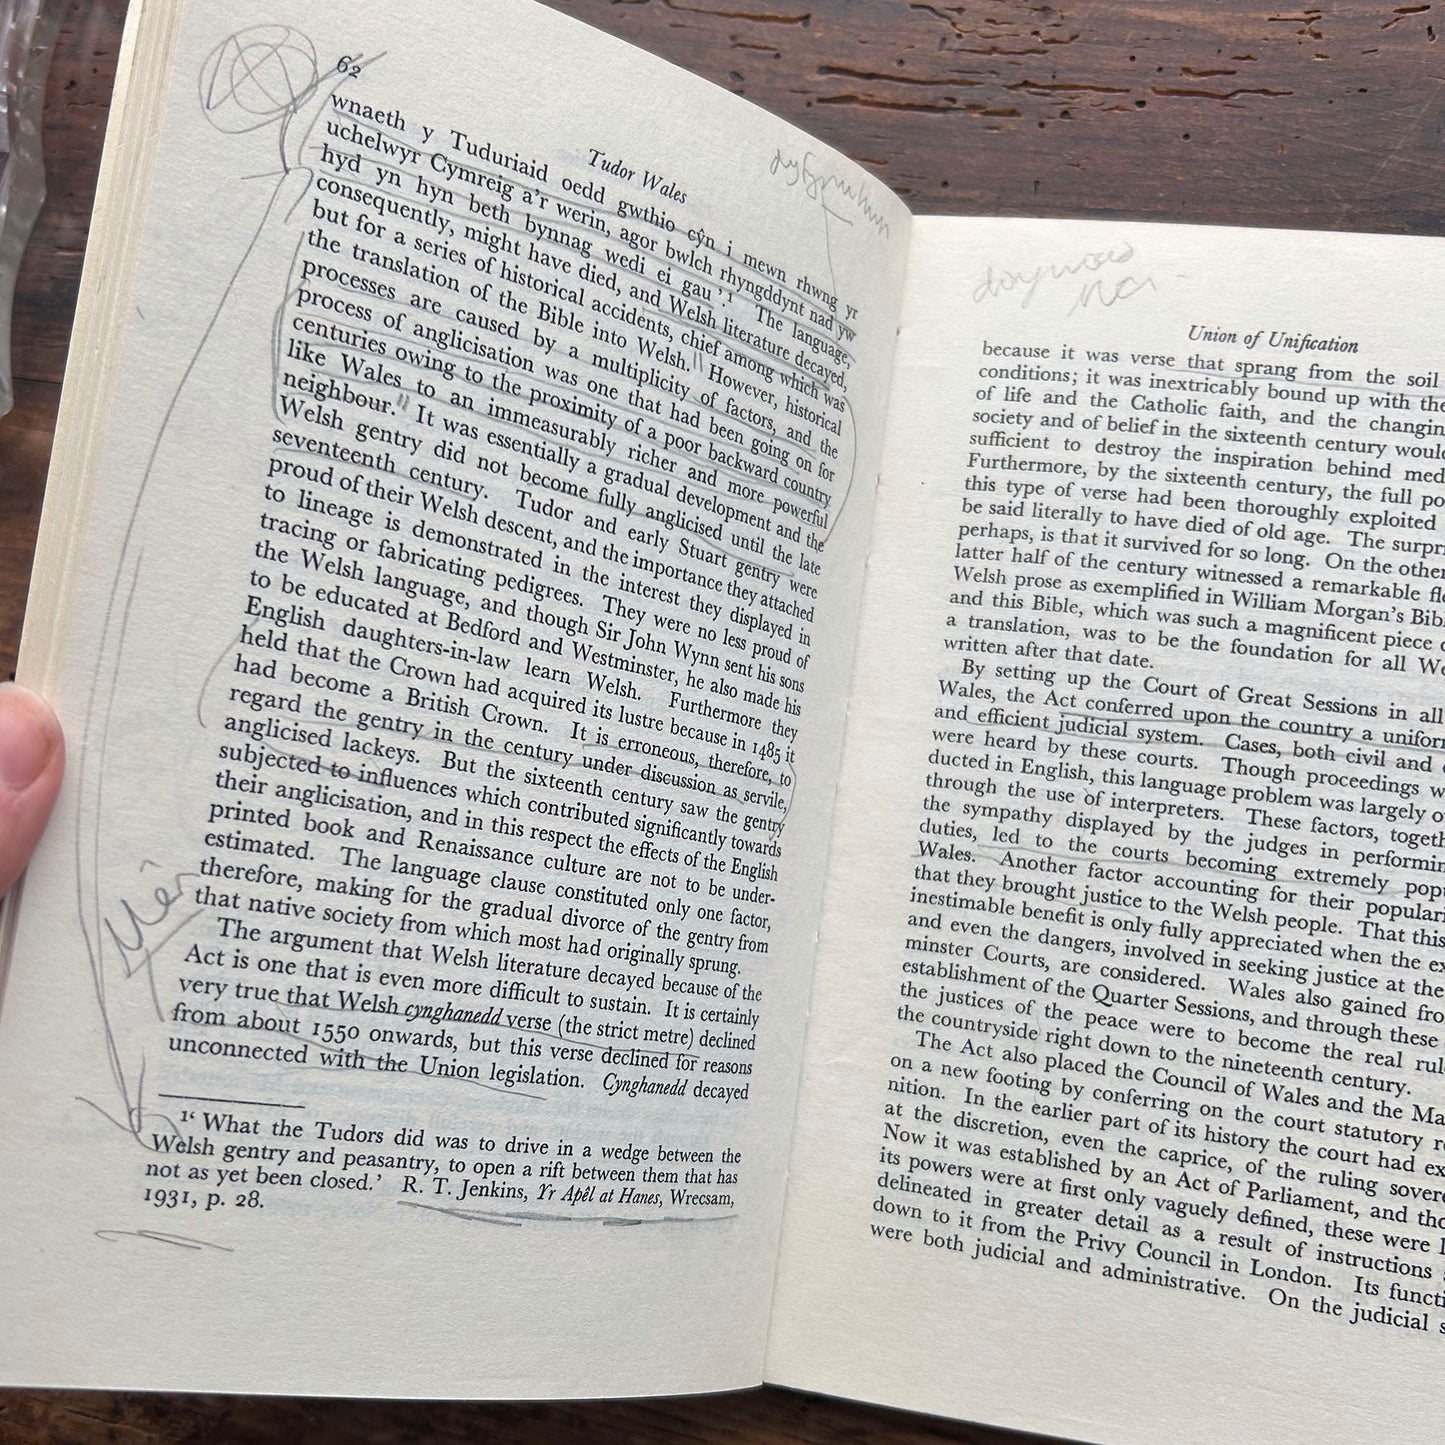 62
Tudor Wales
wnaeth y Tuduriaid oedd gwthio cŷn i mewn rhwng yr
uchelwyr Cymreig a'r werin, agor bwlch rhyngddynt nad yw
hyd yn hyn beth bynnag wedi ei gau'.¹ The language,
consequently, might have died, and Welsh literature decayed,
but for a series of historical accidents, chief among which was
the translation of the Bible into Welsh. However, historical
processes are caused by a multiplicity of factors, and the
process of anglicisation was one that had been going on for
centuries owing to the proximity of a poor backward country
like Wales to an immeasurably richer and more powerful
neighbour. It was essentially a gradual development and the
Welsh gentry did not become fully anglicised until the late
seventeenth century. Tudor and early Stuart gentry were
proud of their Welsh descent, and the importance they attached
to lineage is demonstrated in the interest they displayed in
tracing or fabricating pedigrees. They were no less proud of
the Welsh language, and though Sir John Wynn sent his sons
to be educated at Bedford and Westminster, he also made his
English daughters-in-law learn Welsh. Furthermore they
held that the Crown had acquired its lustre because in 1485 it
had become a British Crown. It is erroneous, therefore, to
regard the gentry in the century under discussion as servile,
anglicised lackeys. But the sixteenth century saw the gentry
subjected to influences which contributed significantly towards
their anglicisation, and in this respect the effects of the English
printed book and Renaissance culture are not to be under-
estimated. The language clause constituted only one factor,
therefore, making for the gradual divorce of the gentry from
that native society from which most had originally sprung.
The argument that Welsh literature decayed because of the
Act is one that is even more difficult to sustain. It is certainly
very true that Welsh cynghanedd verse (the strict metre) declined
from about 1550 onwards, but this verse declined for reasons
unconnected with the Union legislation. Cynghanedd decayed
¹' What the Tudors did was to drive in a wedge between the
Welsh gentry and peasantry, to open a rift between them that has
not as yet been closed.' R. T. Jenkins, Yr Apêl at Hanes, Wrecsam,
1931, p. 28.
Union of Unification
because it was verse that sprang from the soil
conditions; it was inextricably bound up with the
of life and the Catholic faith, and the changin
society and of belief in the sixteenth century woul
sufficient to destroy the inspiration behind med
Furthermore, by the sixteenth century, the full po
this type of verse had been thoroughly exploited
be said literally to have died of old age. The surpri
perhaps, is that it survived for so long. On the other
latter half of the century witnessed a remarkable fl
Welsh prose as exemplified in William Morgan's Bib
and this Bible, which was such a magnificent piece
a translation, was to be the foundation for all We
written after that date.
By setting up the Court of Great Sessions in all
Wales, the Act conferred upon the country a uniform
and efficient judicial system. Cases, both civil and
were heard by these courts. Though proceedings w
ducted in English, this language problem was largely o
through the use of interpreters. These factors, togeth
the sympathy displayed by the judges in performin
duties, led to the courts becoming extremely pop
Wales. Another factor accounting for their populari
that they brought justice to the Welsh people. That this
inestimable benefit is only fully appreciated when the ex
and even the dangers, involved in seeking justice at the
minster Courts, are considered. Wales also gained fro
establishment of the Quarter Sessions, and through these
the justices of the peace were to become the real rul
the countryside right down to the nineteenth century.
The Act also placed the Council of Wales and the Ma
on a new footing by conferring on the court statutory r
nition. In the earlier part of its history the court had ex
at the discretion, even the caprice, of the ruling sovere
Now it was established by an Act of Parliament, and tho
its powers were at first only vaguely defined, these were l
delineated in greater detail as a result of instructions
down to it from the Privy Council in London. Its functi
were both judicial and administrative. On the judicial s